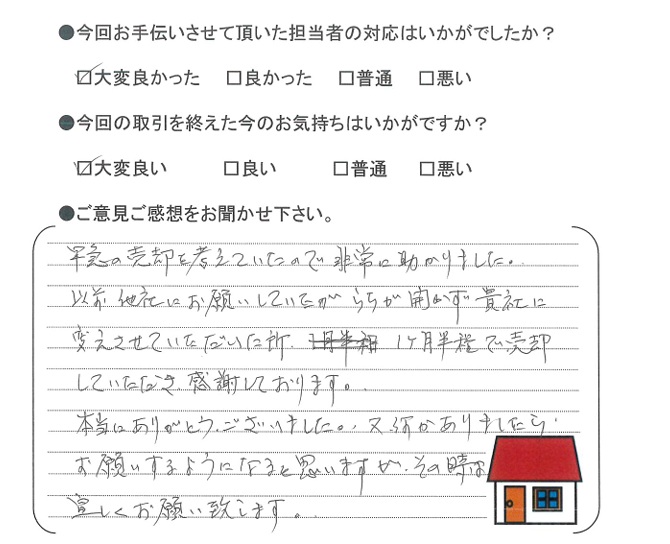 ●今回お手伝いさせて頂いた担当者の対応はいかがでしたか？
☑大変良かった □良かった □普通 □悪い
●今回の取引を終えた今のお気持ちはいかがですか？
☑大変良い □良い □普通 □悪い
●ご意見ご感想をお聞かせ下さい。
早急の売却を考えていたので非常に助かりました。
以前他社にお願いしていたがらちが開かず貴社に
変えさせていただいた所、1ヶ月半程で売却
していただき感謝しております。
本当にありがとうございました。又何かありましたら
お願いするようになると思いますが、その時は
宜しくお願い致します。